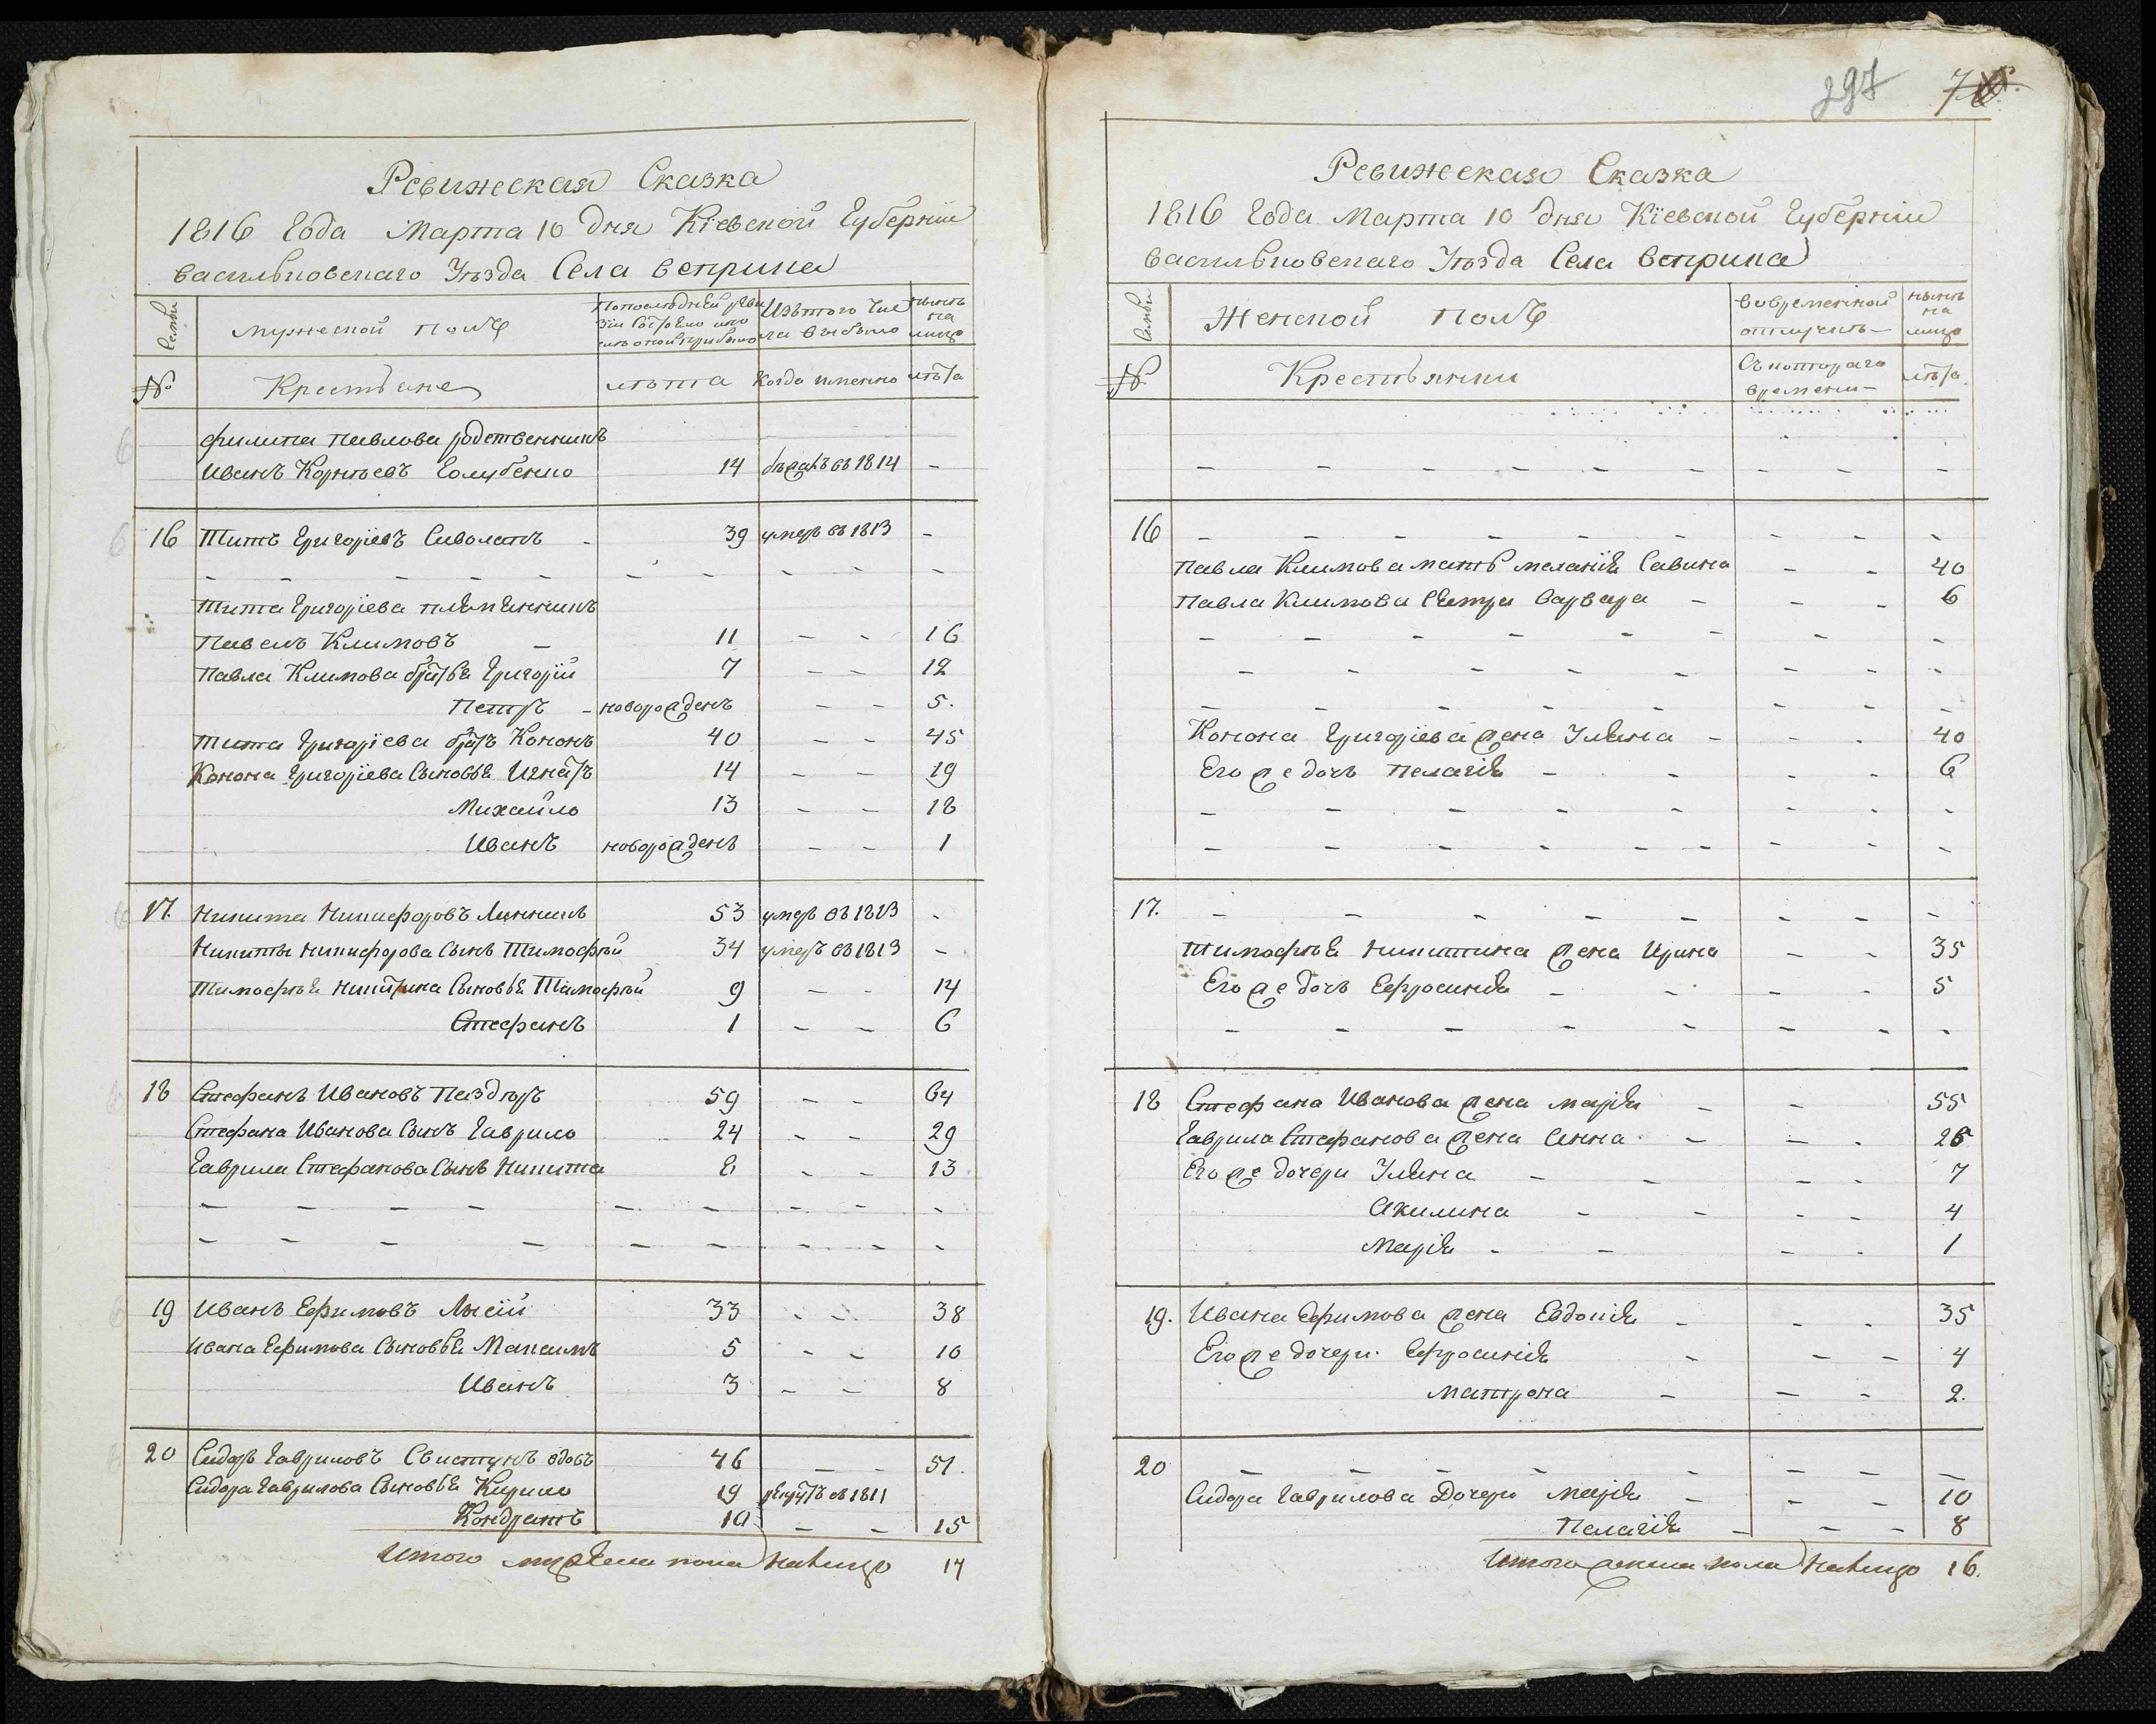 Ревижеская Сказка
1816 Года Марта 10 дня Кіевской Губерніи
васильковскаго Уѣзда Села веприка
Семьи
мужеской полъ
По последней реви
зіи состояло или
после оной прибыло
Изътого чис
ла выбыло
нынѣ
на
лицо
№
Крестьяне
лѣта
Когда именно
лѣта
филипа павлова родственникъ
Иванъ Корнѣевъ Голубенко 14 бѣжалъ въ 1814 -
16 Титъ Григоріевъ Сиволапъ - 39 умеръ въ 1813 -
- - - - - - - - - -
Тита Григоріева племенникъ
Павелъ Климовъ - 11 - - 16
Павла Климова братья Григорій 7 - - 12
Петръ - новорожденъ - - 5.
Тита Григоріева братъ Кононъ 40 - - 45
Конона Григоріева Сыновья Игнатъ 14 - - 19
Михайло 13 - - 18
Иванъ новорожденъ - - 1
17. Никита Никифоровъ Линникъ 53 умеръ въ 1813 -
Никиты Никифорова Сынъ Тимофѣй 34 умеръ въ 1813 -
Тимофѣя Никитина Сыновья Тимофѣй 9 - - 14
Стефанъ 1 - - 6
18 Стефанъ Ивановъ Паздюръ 59 - - 64
Стефана Иванова Сынъ Гаврило 24 - - 29
Гаврила Стефанова Сынъ Никита 8 - - 13
- - - - - - - - - -
- - - - - - - - - -
19 Иванъ Ефимовъ Лысій 33 - - 38
Ивана Ефимова Сыновья Максимъ 5 - - 10
Иванъ 3 - - 8
20 Сидоръ Гавриловъ Свистунъ вдовъ 46 - - 51.
Сидора Гаврилова Сыновья Кирило 19 рекрутъ въ 1811
Кондратъ 10 - - 15
Итого мужеска пола налицо 17
297 7
Ревижеская Сказка
1816 Года Марта 10 дня Кіевской Губерніи
васильковскаго Уѣзда Села веприка
Семьи
Женской полъ
вовременной
отлучкѣ -
нынѣ
на
лицо
№
Крестьянки
Съ котораго
времени -
лѣта
- - - - - - - - - -
16 - - - - - - - - -
Павла Климова мать меланія Савина - - 40
Павла Климова Сестра варвара - - - 6
- - - - - - - -
- - - - - - - -
- - - - - - - -
Конона Григоріева жена Уляна - - - 40
Его же дочь Пелагія - - - - 6
- - - - - - - -
- - - - - - - - -
17. - - - - - - - -
Тимофѣя Никитина жена Ирина - - 35
Его же дочь Ефросинія - - - - 5
- - - - - - - -
18 Стефана Иванова жена марія - - 55
Гаврила Стефанова жена Анна - - - 26
Его же дочери Уляна - - - - 7
Акилина - - - - 4
Марія - - - - 1
19. Ивана Ефимова жена Евдокія - - - 35
Его же дочери Ефросинія - - - 4
матрона - - - 2.
20 - - - - - - - - -
Сидора Гаврилова Дочери марія - - - 10
Пелагія - - - 8
Итого женска пола налицо 16.